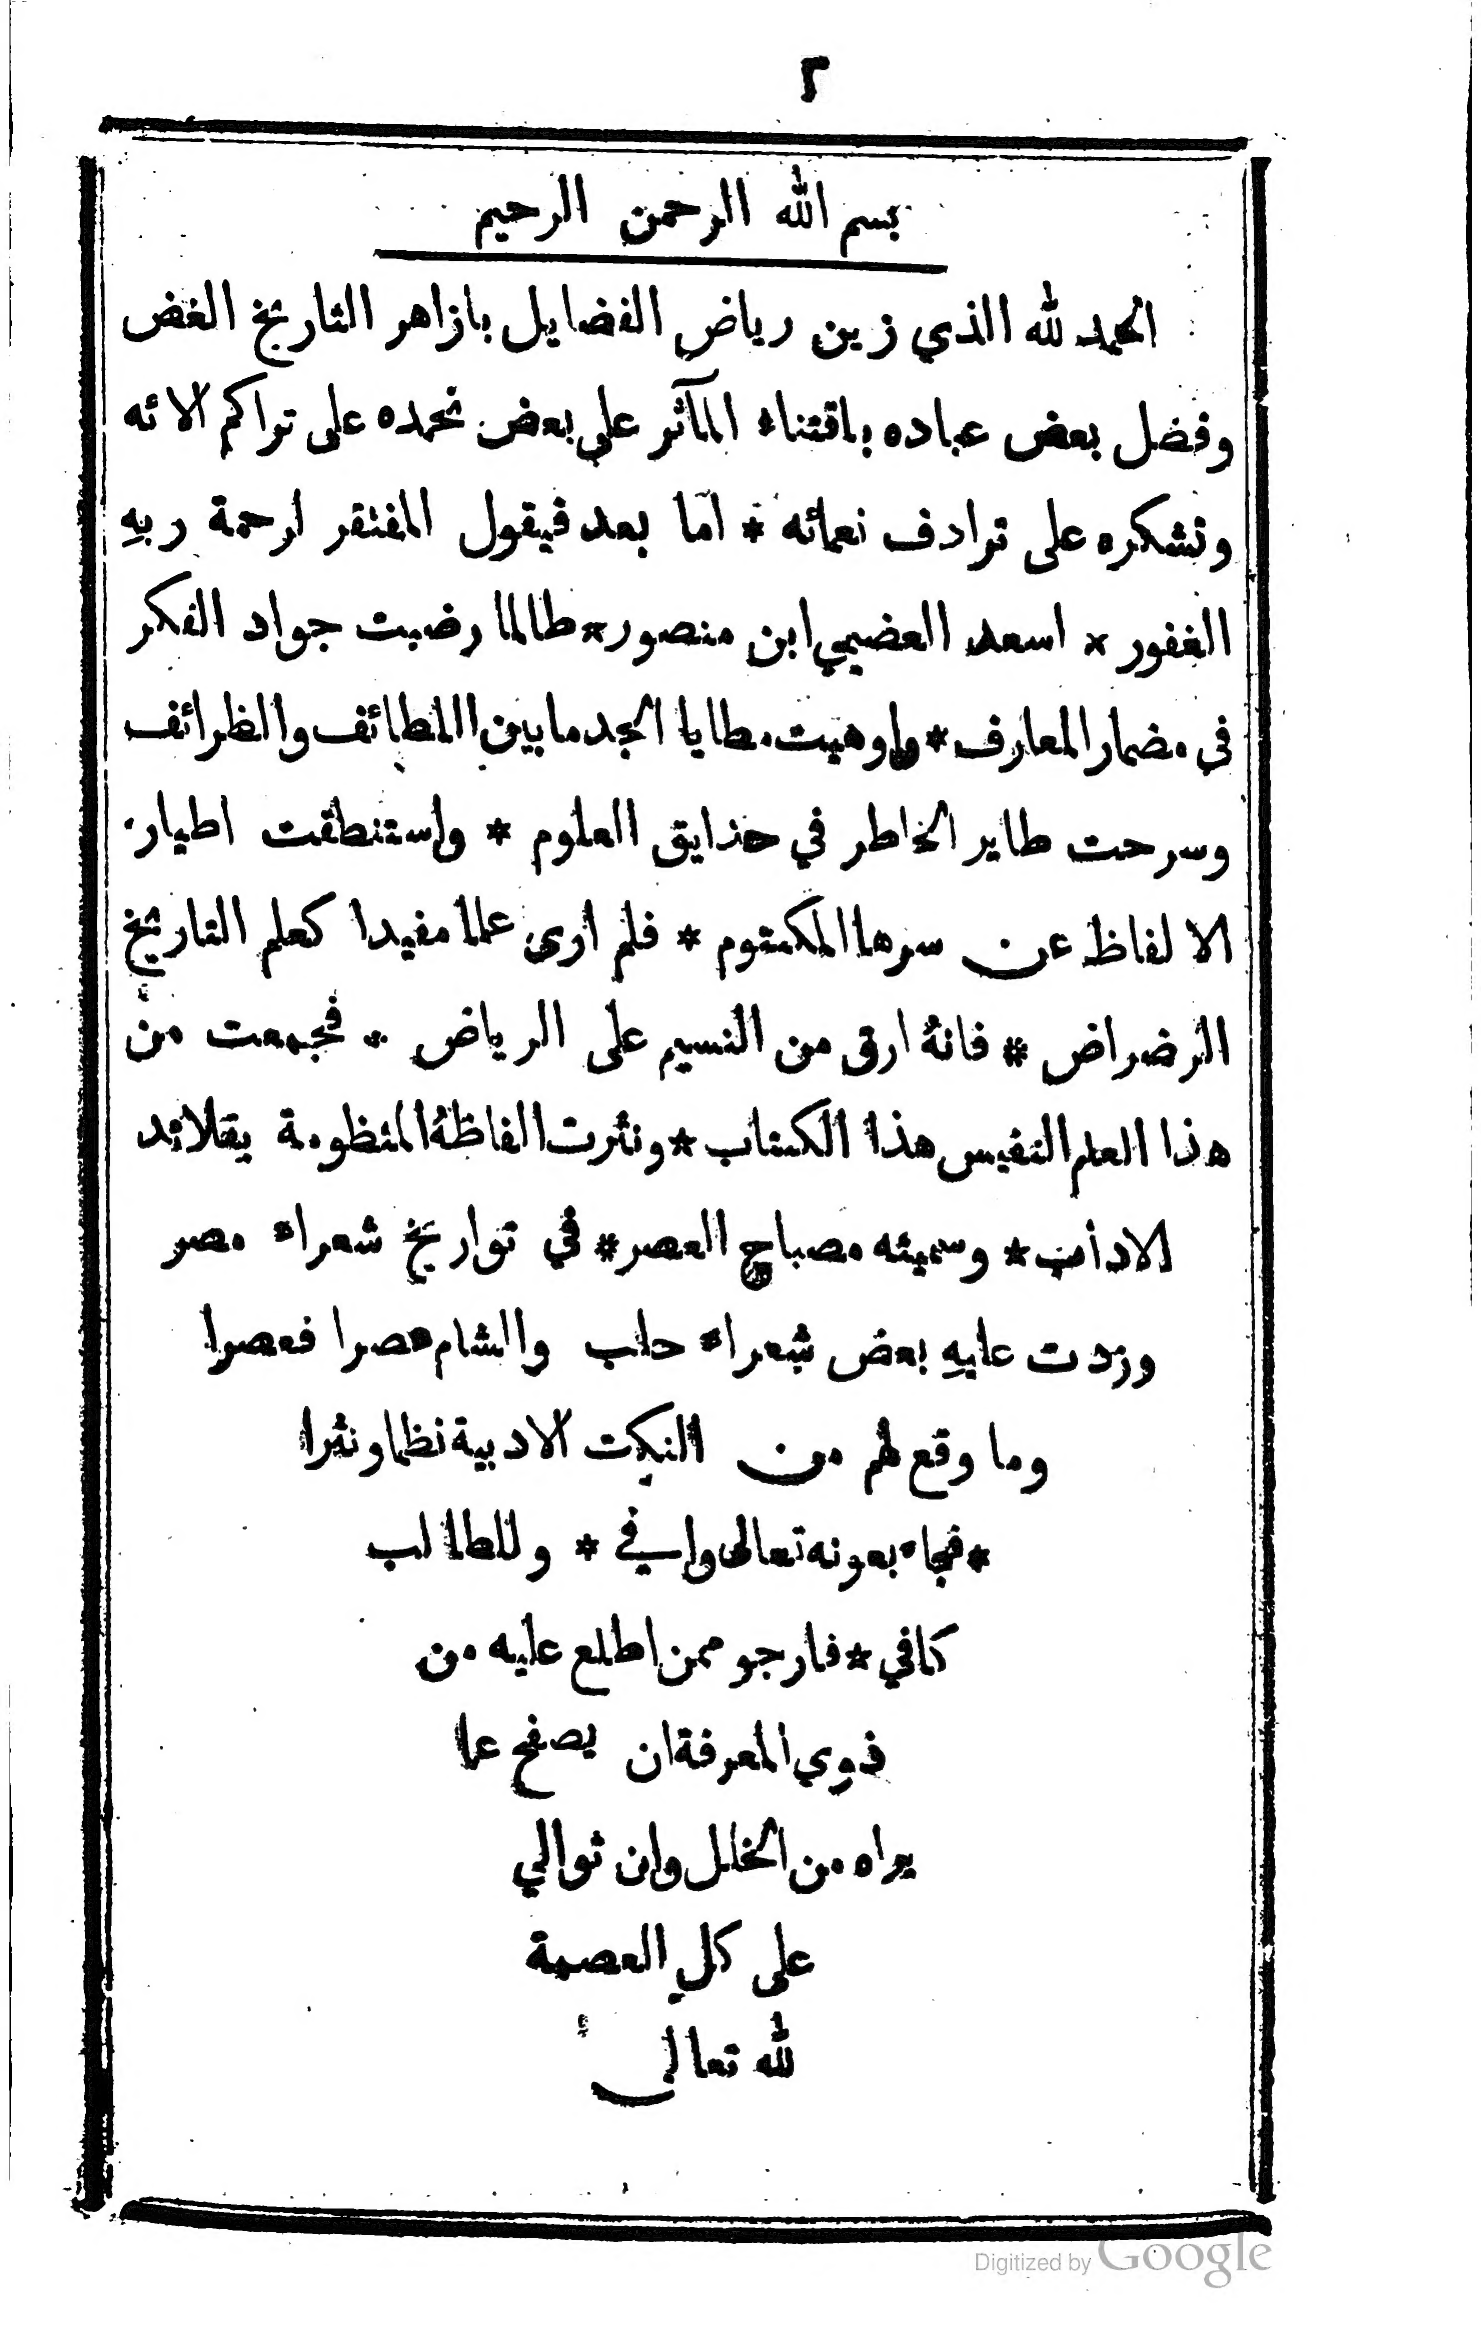 ٢
بسم الله الرحمن الرحيم
الحمد لله الذي زين رياض الفضايل بازاهر التاريخ الغض
وفضل بعض عباده باقتناء المآثر على بعض نحمده على تراكم الائه
ونشكره على ترادف نعمائه * اما بعد فيقول المفتقر لرحمة ربهِ
الغفور * اسعد العضيمي ابن منصور * طالما رضبت جواد الفكر
في مضمار المعارف * واوهيت مطايا الجد ما بين اللطائف والظرائف
وسرحت طاير الخاطر في حذايق العلوم * واستنطقت اطيار
الالفاظ عن سرها المكتوم * فلم ارى علما مفيدا كعلم التاريخ
الرضراض * فانهُ ارق من النسيم على الرياض * فجمعت من
هذا العلم النفيس هذا الكتاب * ونثرت الفاظهُ المنظومة بقلائد
الادأب * وسميته مصباح العصر * في تواريخ شعراء مصر
وزدت عليهِ بعض شعراء حلب والشام عصرا فعصرا
وما وقع لهم من النكت الادبية نظما ونثرا
* فجاء بعونه تعالى وافي * وللطالب
كافي * فارجو ممن اطلع عليه من
ذوي المعرفة ان يصفح عما
يراه من الخلل وان توالي
على كلٍ العصمة
لله تعالى
Digitized by Google